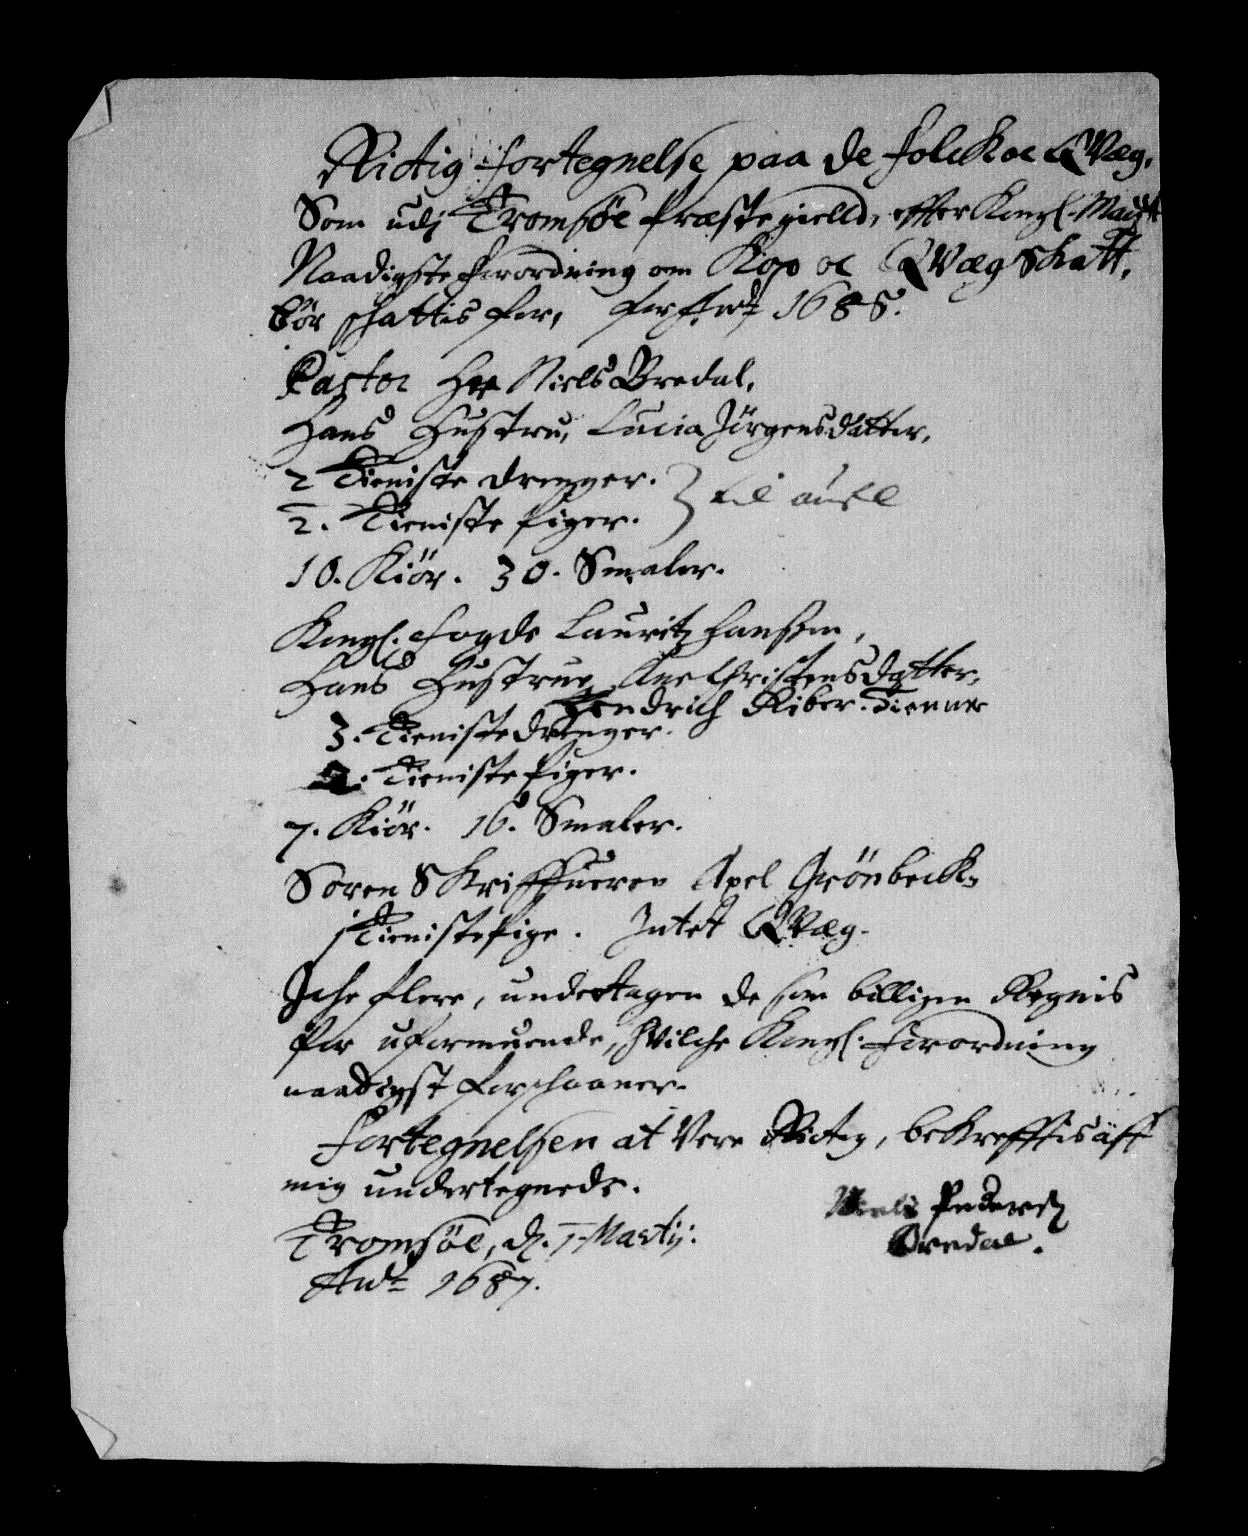 Rictig fortegnelse paa de folck oc QVæg,
Som udj Tromsøe Præstegield, effter Kongl. Mayst
Naadigste forordning om Kop oc QVæg Schatt,
bør schattis for, for 1685.
Pastor Her Niels Bredal,
Hans Hustru, Lucia Jörgensdatter,
2 Tieniste drenger.
2. Tieniste piger.
10. Kiör. 30. Smaler.
Kongl. fogde Lauritz Hanssen,
Hans Hustrue Ane Christensdatter,
Hendrich Riber. Tienner
3. Tieniste drenger.
2. Tieniste piger.
7. Kiör. 16. Smaler.
Soren Skriffueren Axel Grönbeck
1 Tieniste pige. Intet QVæg.
Iche flere, undertagen de som billigen Regnis
for uformuende, hvilche Kongl. forordning
naadigst forschaaner.
Fortegnelsen at Vere Rictig, bekrefftis aff
mig undertegnede.
Niels Pedersen
Tromsöe, d. 7 Martij.
Bredal.
Ao 1687.